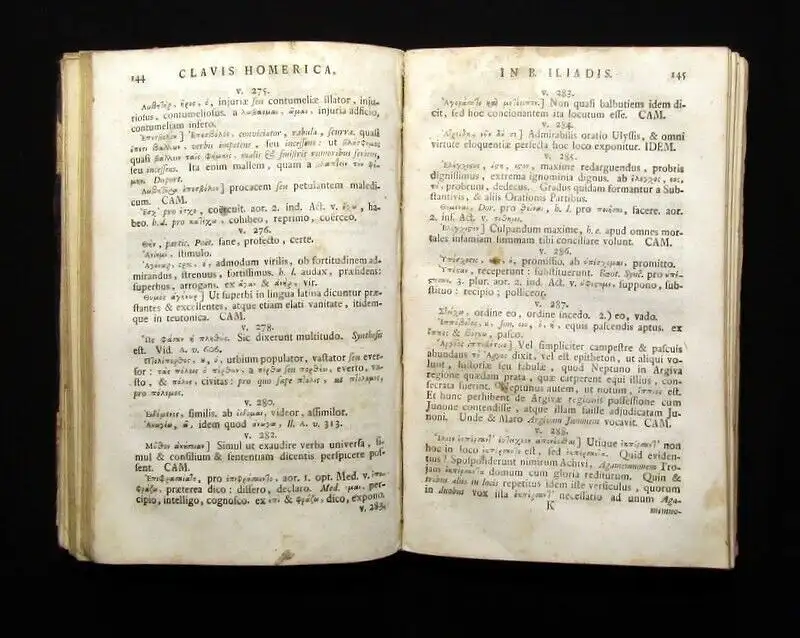 144 CLAVIS HOMERICA.
v. 275.
Λωβητὴρ, ῆρος, ὁ, injuriæ seu contumeliæ illator, inju-
riosus, contumeliosus. a λωβάομαι, ῶμαι, injuria adficio,
contumeliam infero.
quasi
verbis impetens, seu incessens: ut
quasi malis & sinistris rumoribus feriens,
seu incessens. Ita enim mallem, quam a
Duport.
procacem seu petulantem maledi-
cum. CAM.
Ἔσχ' pro ἔσχε, coërcuit. aor. 2. ind. Act. v. ἔχω, ha-
beo. h. d. pro κατέχω, cohibeo, reprimo, coërceo.
v. 276.
Θὴν, partic. Poet. sane, profecto, certe.
stimulo.
admodum virilis, ob fortitudinem ad-
mirandus, strenuus, fortissimus. h. l. audax, præfidens:
superbus, arrogans. ex ἄγαν & ἀνὴρ, vir.
Θυμὸς ἀγήνωρ] Ut superbi in lingua latina dicuntur præ-
stantes & excellentes, atque etiam elati vanitate, itidem-
que in teutonica. CAM.
v. 278.
Ὣς φάσαν ἡ πληθύς. Sic dixerunt multitudo. Synthesis
est. Vid. A. v. 606.
Πτολίπορθος, ου, ὁ, urbium populator, vastator seu ever-
sor: everto, va-
sto, & πόλις, civitas: pro quo sæpe
pro πόλεμος.
v. 280.
Εἰδόμενος, similis. ab εἴδομαι, videor, assimilor.
idem quod Il. A. v. 313.
v. 282.
Μῦθον ἀκούσειαν] Simul ut exaudire verba universa, si-
mul & consilium & sententiam dicentis perspicere pos-
sent. CAM.
pro aor. 1. opt. Med. v.
præterea dico: dissero, declaro. Med. per-
cipio, intelligo, cognosco. ex ἐπὶ & φράζω, dico, expono.
v. 283.
IN B. ILIADIS. 145
v. 283.
Non quasi balbutiem idem di-
cit, sed hoc concionantem ita locutum esse. CAM.
v. 284.
Admirabilis oratio Ulyssis, & omni
virtute eloquentiæ perfecta hoc loco exponitur. IDEM.
v. 285.
maxime redarguendus, probris
dignissimus, extrema ignominia dignus. ab ἔλεγχος, εος,
τὸ, probrum, dedecus. Gradus quidam formantur a Sub-
stantivis, & aliis Orationis Partibus.
Dor. pro h. l. pro facere. aor.
2. inf. Act. v. τίθημι.
Culpandum maxime, h. e. apud omnes mor-
tales infamiam summam tibi conciliare volunt. CAM.
v. 286.
promissio. ab promitto.
receperunt: substituerunt. Bæot. Sync. pro
3. plur. aor. 2. ind. Act. v. suppono, sub-
stituo: recipio; polliceor.
v. 287.
Στείχω, ordine eo, ordine incedo. 2.) eo, vado.
equis pascendis aptus. ex
ἵππος & pasco.
Vel simpliciter campestre & pascuis
abundans τὸ Ἄργος dixit, vel est epitheton, ut aliqui vo-
lunt, historiæ seu fabulæ, quod Neptuno in Argiva
regione quædam prata, quæ carperent equi illius, con-
secrata fuerint. Neptunus autem, ut notum, ἵππιος est.
Et hunc perhibent de Argivæ regionis possessione cum
Junone contendisse, atque illam fuisse adjudicatam Ju-
noni. Unde & Maro Argivam Junonem vocavit. CAM.
v. 288.
Utique non
hoc in loco est, sed Quid eviden-
tius? Spoponderunt nimirum Achivi, Agamemnonem Tro-
jam domum cum gloria rediturum. Quin &
tribus aliis in locis repetitus idem iste versiculus, quorum
in duobus vox ista necessario ad unum Aga-
K memno-